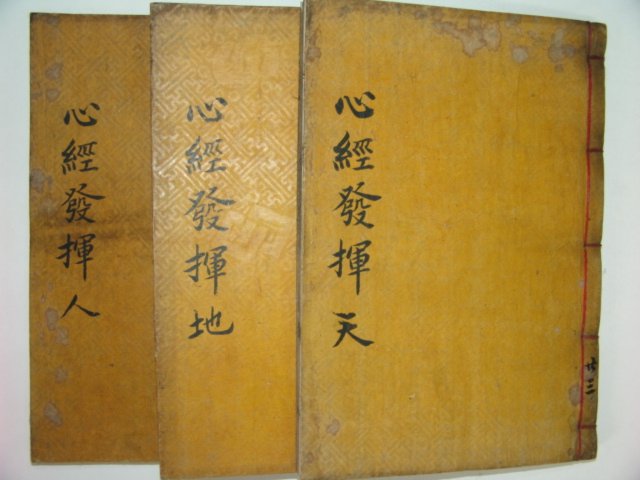 心經發揮 天
心經發揮 地
心經發揮 人
共三